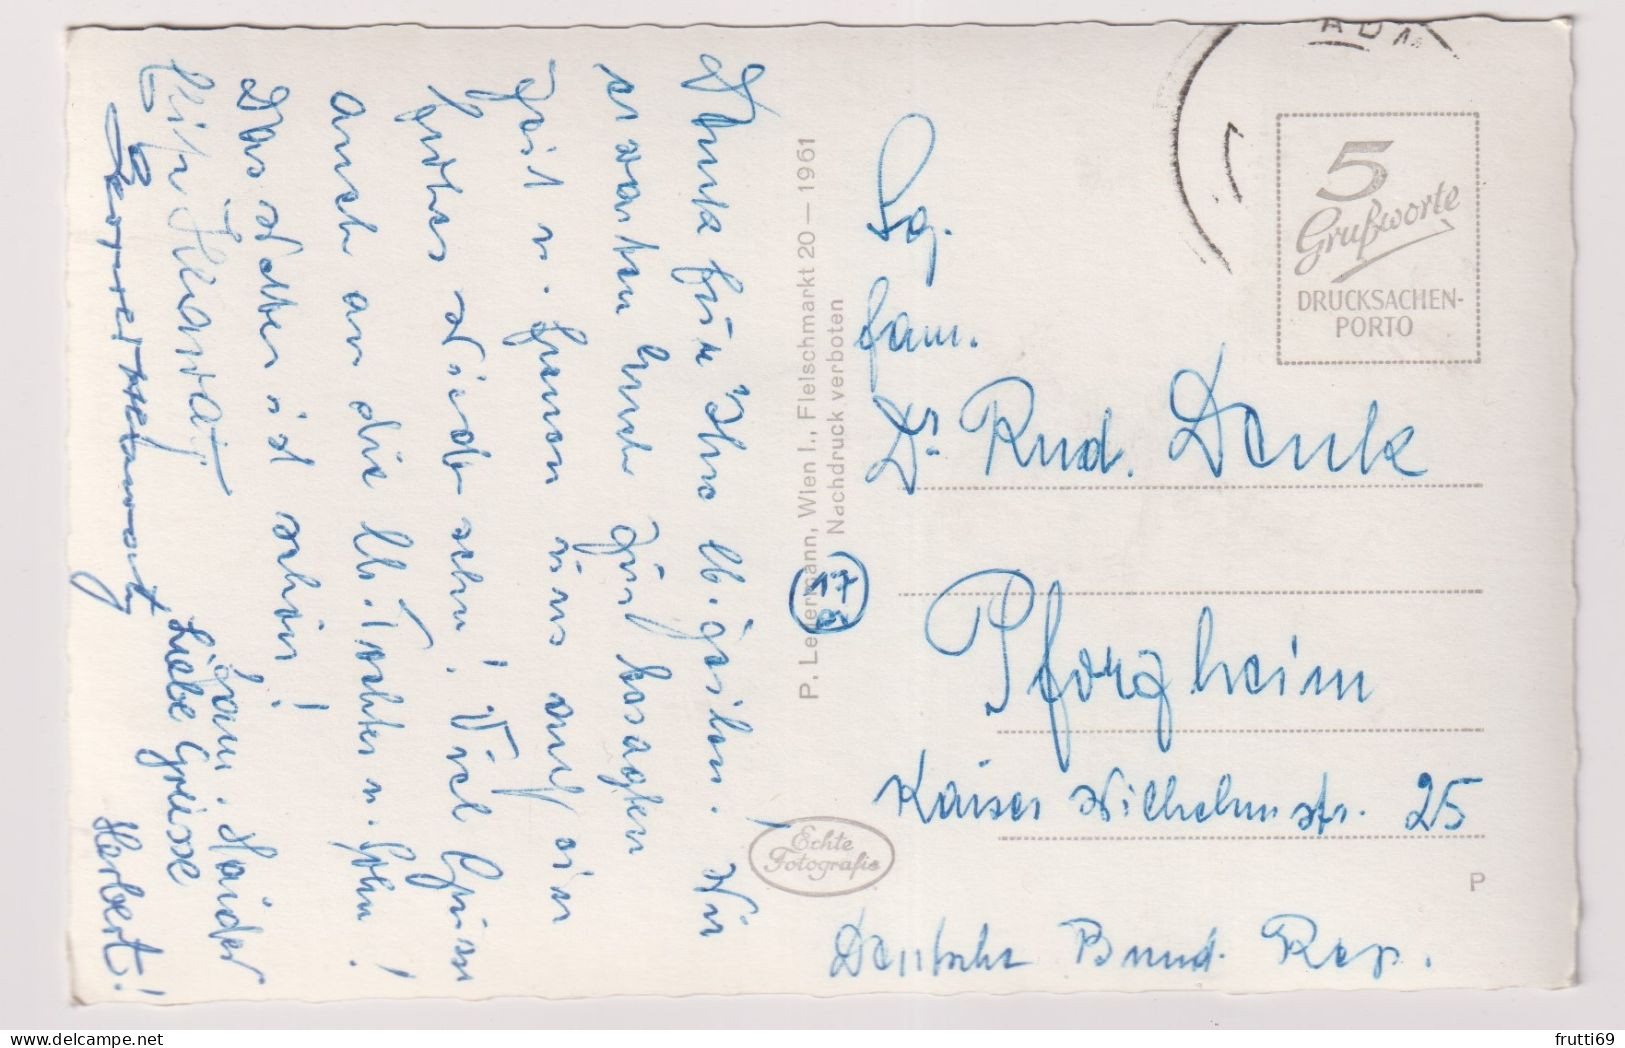 Danke für Ihre lb. Zeilen! Wir
erwarten Euch zur besagten
Zeit u. freuen uns auf ein
frohes Wiedersehn! Viel Grüsse
auch an die lb. Tochter u. Sohn!
Das Wetter ist schön!
Fam. Haider
Liebe Grüsse
Herbert!
P. Ledermann, Wien I., Fleischmarkt 20 — 1961
Nachdruck verboten
Echte
Fotografie
5
Grußworte
DRUCKSACHEN-
PORTO
Fam.
Dr. Rud. Denk
17
Pforzheim
Kaiser Wilhelmstr. 25
P
Deutsche Bund. Rep.
frutti69